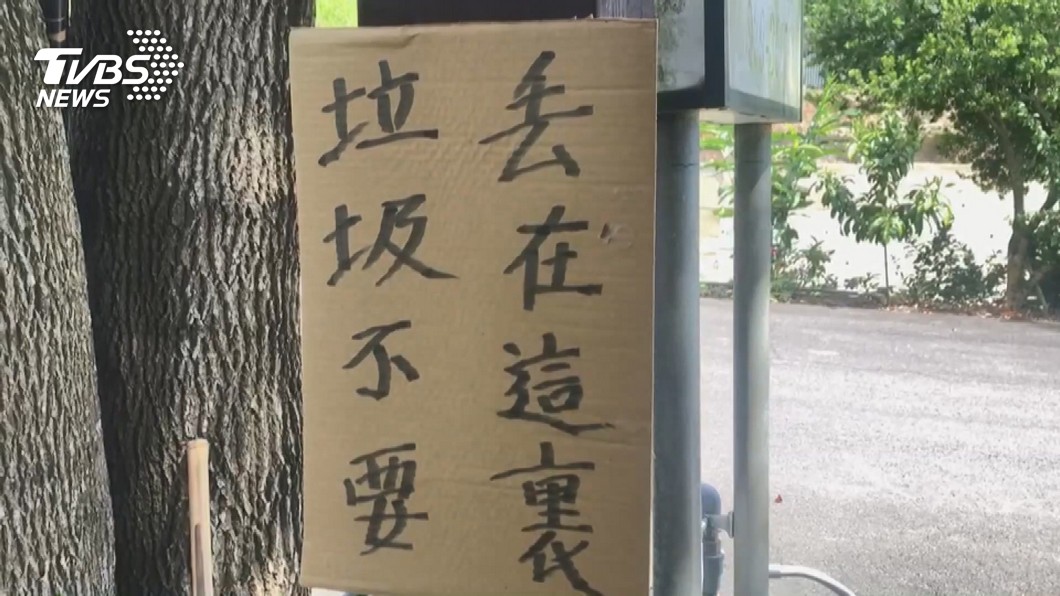 TVBS
NEWS
垃圾不要
丢在這裏